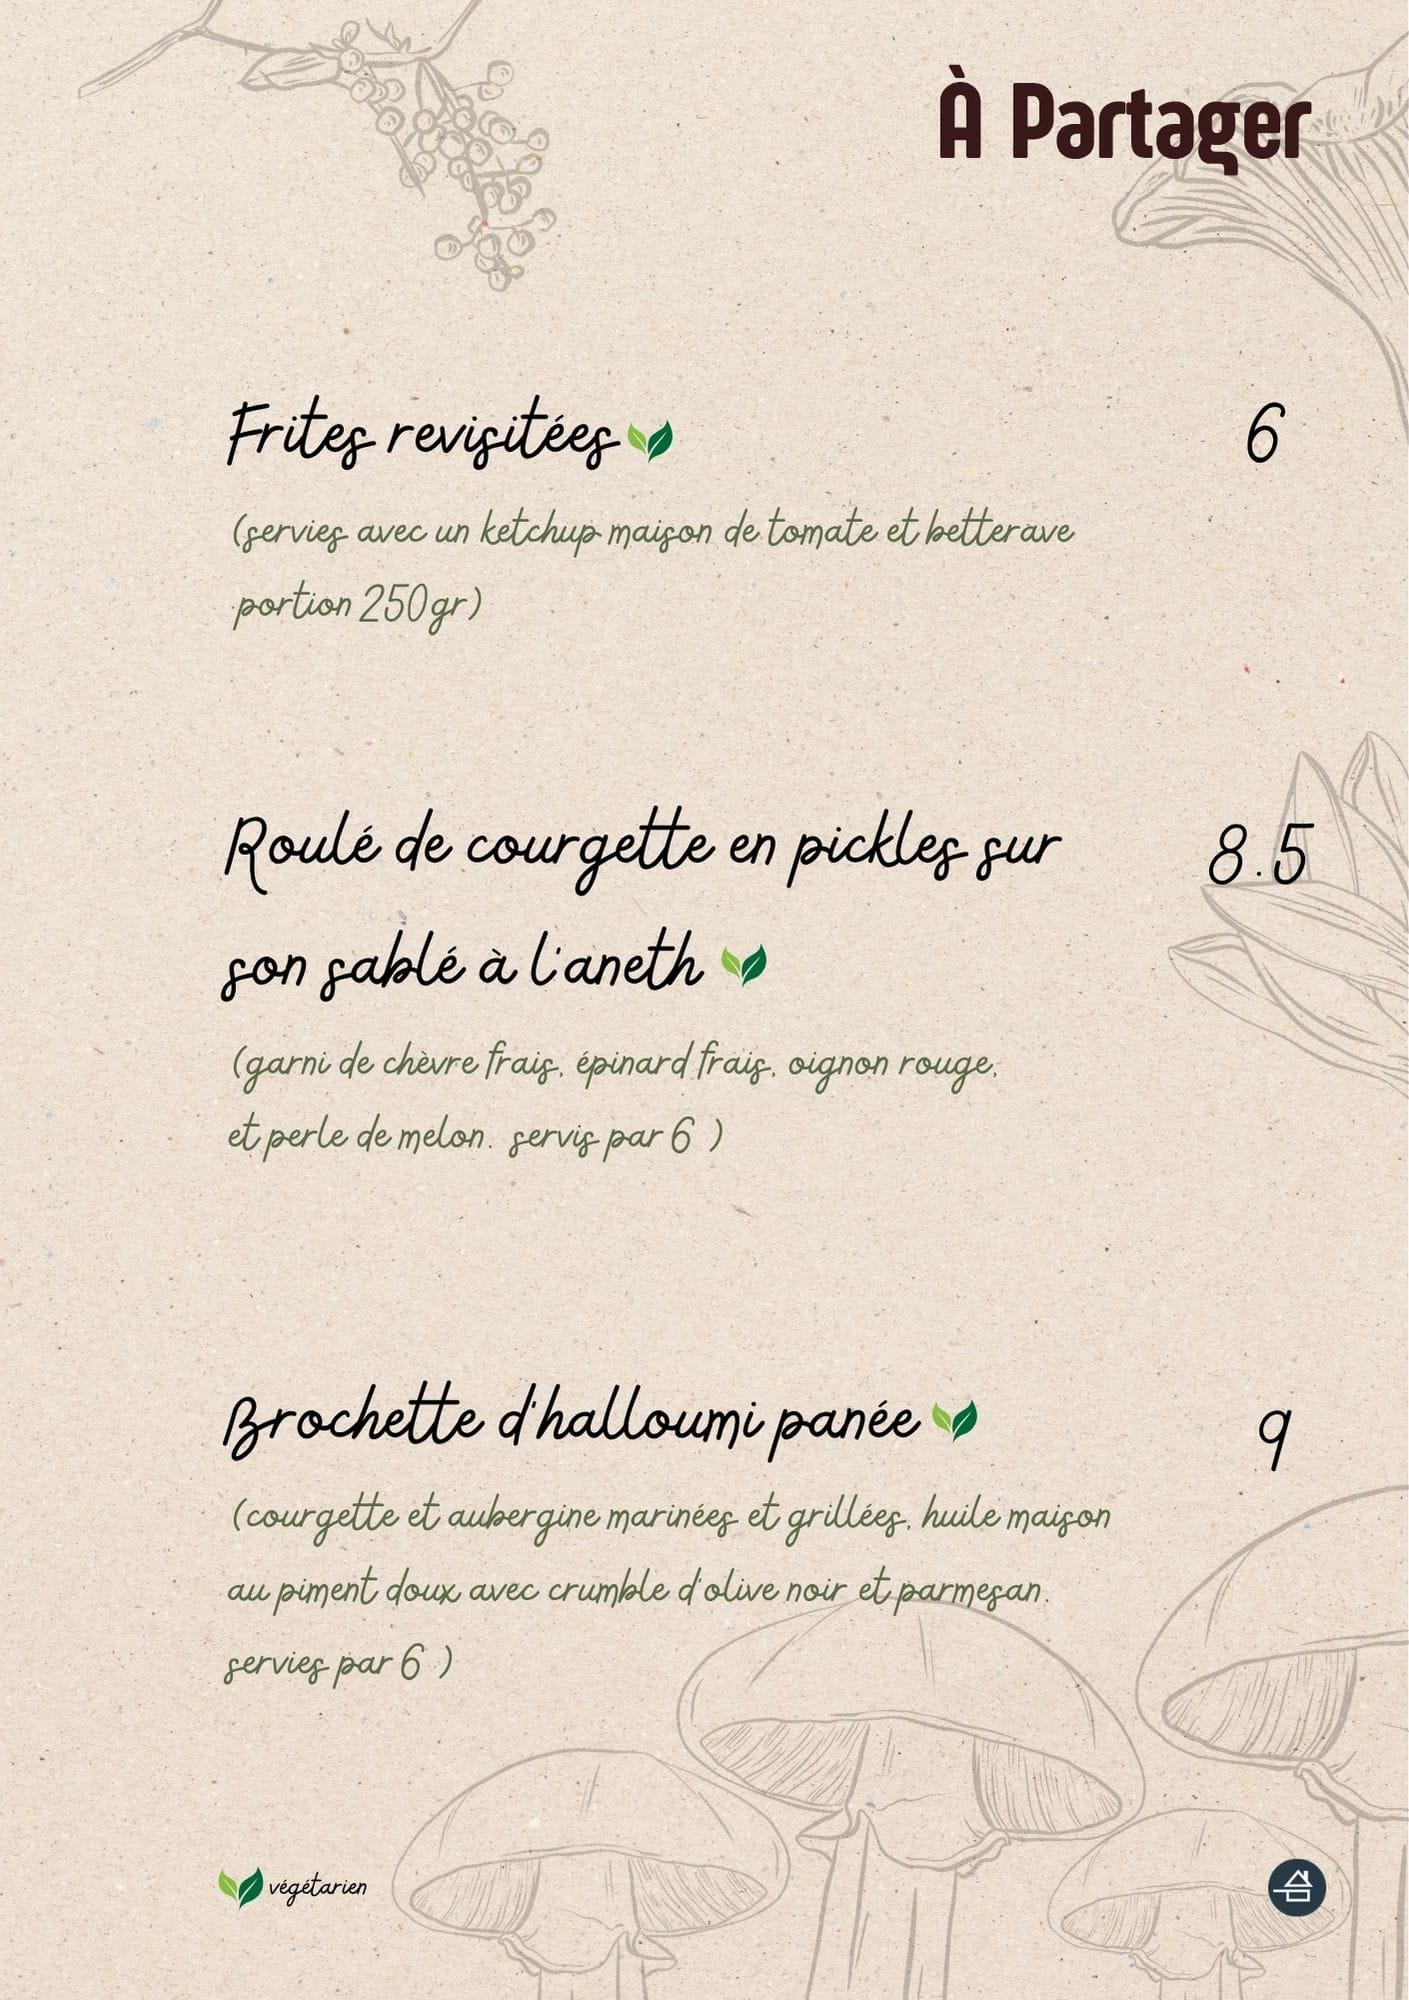 À Partager
Frites revisitées 6
(servies avec un ketchup maison de tomate et betterave
portion 250gr)
Roulé de courgette en pickles sur 8.5
son sablé à l'aneth
(garni de chèvre frais, épinard frais, oignon rouge,
et perle de melon. servis par 6 )
Brochette d'halloumi panée 9
(courgette et aubergine marinées et grillées, huile maison
au piment doux avec crumble d'olive noir et parmesan.
servies par 6 )
végétarien